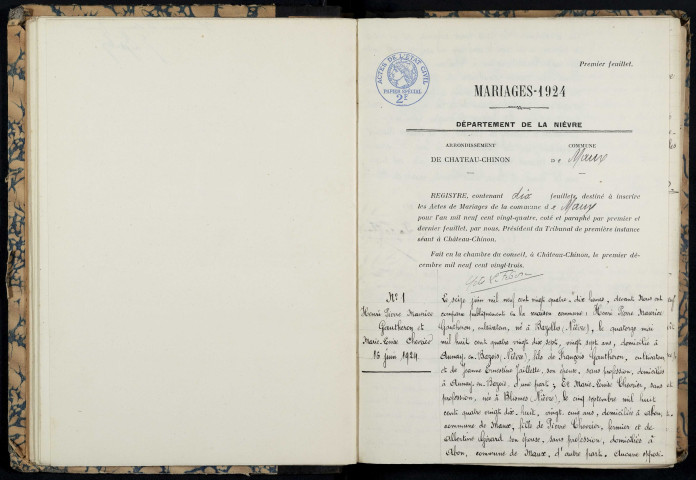 Premier feuillet.
ACTES DE L'ETAT CIVIL
PAPIER SPECIAL
2F
MARIAGES-1924
DÉPARTEMENT DE LA NIÈVRE
ARRONDISSEMENT
DE CHATEAU-CHINON
COMMUNE
DE Maux
REGISTRE, contenant dix feuillets, destiné à inscrire
les Actes de Mariages de la commune de Maux
pour l'an mil neuf cent vingt-quatre, coté et paraphé par premier et
dernier feuillet, par nous, Président du Tribunal de première instance
séant à Château-Chinon.
Fait en la chambre du conseil, à Château-Chinon, le premier dé-
cembre mil neuf cent vingt-trois.
N° 1
Henri Pierre Maurice
Gautheron et
Marie-Louise Chevrier
16 juin 1924
Le seize juin mil neuf cent vingt quatre, dix heures, devant Nous ont
comparu publiquement en la maison commune : Henri Pierre Maurice
Gautheron, cultivateur, né à Bazolles (Nièvre), le quatorze mai
mil huit cent quatre vingt dix sept, vingt sept ans, domicilié à
Aunay-en-Bazois (Nièvre), fils de François Gautheron, cultivateur
et de Jeanne Ernestine son épouse, sans profession, domiciliés
à Aunay-en-Bazois, d'une part ; Et Marie-Louise Chevrier, sans
profession, née à Blismes (Nièvre), le cinq septembre mil huit
cent quatre vingt dix-huit, vingt cinq ans, domiciliée à Abon,
commune de Maux, fille de Pierre Chevrier, fermier et de
Albertine Gérard son épouse, sans profession, domiciliés à
Abon, commune de Maux, d'autre part. Aucune opposi-